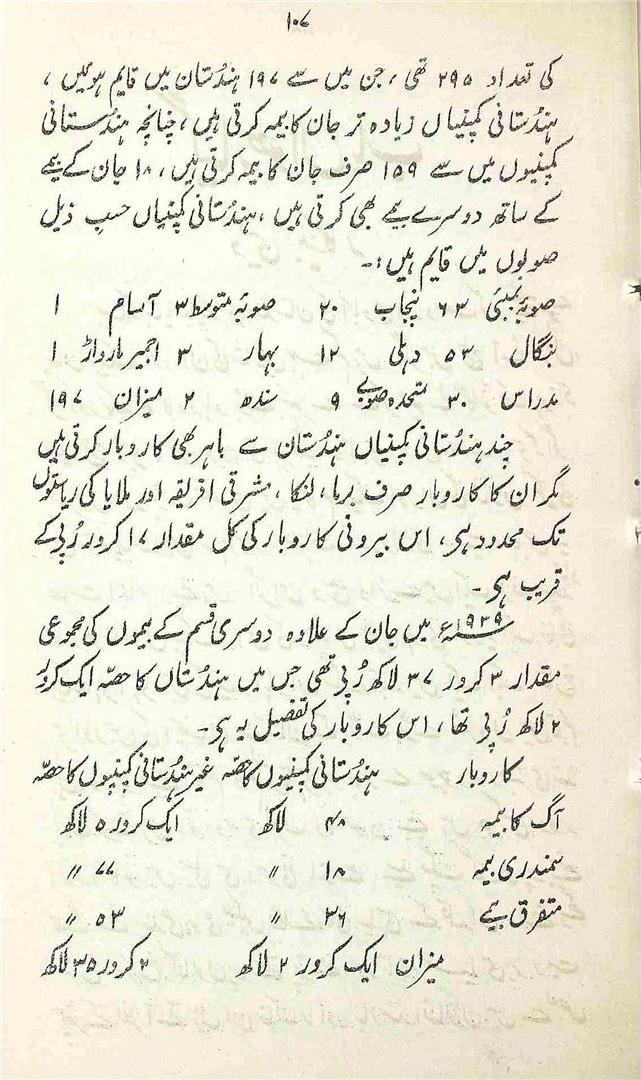 ۱۰۷
کی تعداد ۲۹۵ تھی ، جن میں سے ۱۹۷ ہندُستان میں قایم ہوئیں ،
ہندُستانی کمپنیاں زیادہ تر جان کا بیمہ کرتی ہیں ، چنانچہ ہندُستانی
کمپنیوں میں سے ۱۵۹ صرف جان کا بیمہ کرتی ہیں ، ۱۸ جان کے بیمے
کے ساتھ دوسرے بیمے بھی کرتی ہیں ، ہندُستانی کمپنیاں حسبِ ذیل
صوبوں میں قایم ہیں :۔
صوبۂ بمبئی ۶۳ پنجاب ۲۰ صوبۂ متوسط ۳ آسام ۱
بنگال ۵۳ دہلی ۱۲ بہار ۳ اجمیر مارواڑ ۱
مدراس ۳۰ متحدہ صوبے ۹ سندھ ۲ میزان ۱۹۷
چند ہندُستانی کمپنیاں ہندُستان سے باہر بھی کاروبار کرتی ہیں
مگر ان کا کاروبار صرف برما ، لنکا ، مشرقی افریقہ اور ملایا کی ریاستوں
تک محدود ہی ، اس بیرونی کاروبار کی کل مقدار ۱۷ کرور رُپی کے
قریب ہی ۔
۱۹۲۹ء میں جان کے علاوہ دوسری قسم کے بیموں کی مجموعی
مقدار ۳ کرور ۳۷ لاکھ رُپی تھی جس میں ہندُستاں کا حصّہ ایک کرور
۲ لاکھ رُپی تھا ، اس کاروبار کی تفصیل یہ ہی ۔
کاروبار ہندُستانی کمپنیوں کا حصّہ غیر ہندُستانی کمپنیوں کا حصّہ
آگ کا بیمہ ۴۸ لاکھ ایک کرور ۵ لاکھ
سمندری بیمہ ۱۸ 〃 ۷۷ 〃
متفرق بیمے ۳۶ 〃 ۵۳ 〃
میزان ایک کرور ۲ لاکھ ۲ کرور ۳۵ لاکھ